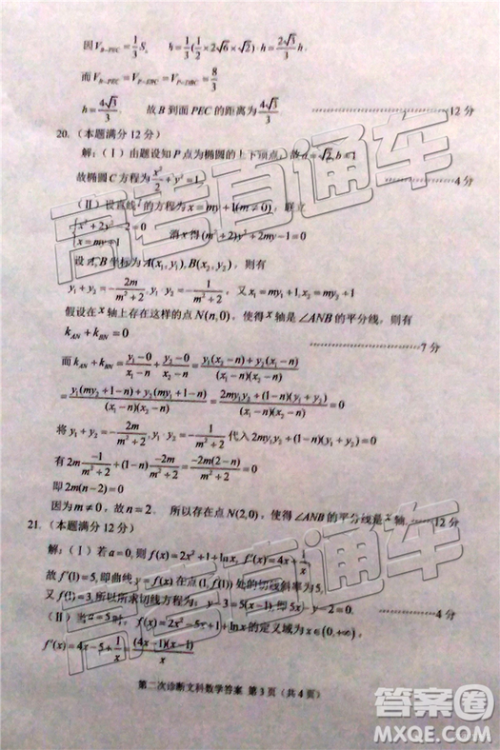 因V_{B-PEC} = 1/3 S, h = 1/3(1/2×2√6×√2)·h = 2√3/3 h.
而V_{B-PEC} = V_{P-EBC} = V_{P-DBC} = 8/3
h = 4√3/3. 故B到面PEC的距离为4√3/3. 12分
20. (本题满分12分)
解:(Ⅰ)由题设知P点为椭圆的上下顶点,故a=√2,b=1
故椭圆C方程为x²/2+y²=1 4分
(Ⅱ)设直线l的方程为x=my+1(m≠0),联立
{x²+2y²-2=0
x=my+1 消x得(m²+2)y²+2my-1=0
设A、B坐标为A(x₁,y₁),B(x₂,y₂),则有
y₁+y₂=-2m/(m²+2),y₁·y₂=-1/(m²+2),又x₁=my₁+1,x₂=my₂+1
假设在x轴上存在这样的点N(n,0),使得x轴是∠ANB的平分线,则有
k_{AN}+k_{BN}=0 7分
而k_{AN}+k_{BN}=(y₁-0)/(x₁-n)+(y₂-0)/(x₂-n)=(y₁(x₂-n)+y₂(x₁-n))/((x₁-n)(x₂-n))
=(y₁(my₂+1-n)+y₂(my₁+1-n))/((x₁-n)(x₂-n))=(2my₁y₂+(1-n)(y₁+y₂))/((x₁-n)(x₂-n))=0
将y₁+y₂=-2m/(m²+2),y₁·y₂=-1/(m²+2)代入2my₁y₂+(1-n)(y₁+y₂)=0
有2m·-1/(m²+2)+(1-n)·-2m/(m²+2)=-2m(2-n)/(m²+2)=0
即2m(n-2)=0
因为m≠0,故n=2. 所以存在点N(2,0),使得∠ANB的平分线是x轴. 12分
21. (本题满分12分)
解:(Ⅰ)若a=0,则f(x)=2x²+1+lnx,f'(x)=4x+1/x,
故f'(1)=5,即曲线y=f(x)在点(1,f(1))处的切线斜率为5,
又f(1)=3,所以所求切线方程为:y-3=5(x-1),即5x-y-2=0. 4分
(Ⅱ)当a=5时,f(x)=2x²-5x+1+lnx的定义域为x∈(0,+∞),
f'(x)=4x-5+1/x=(4x-1)(x-1)/x
第二次诊断文科数学答案 第3页(共4页)
高考直通车
高考直通车
答案圈
MXQE.COM